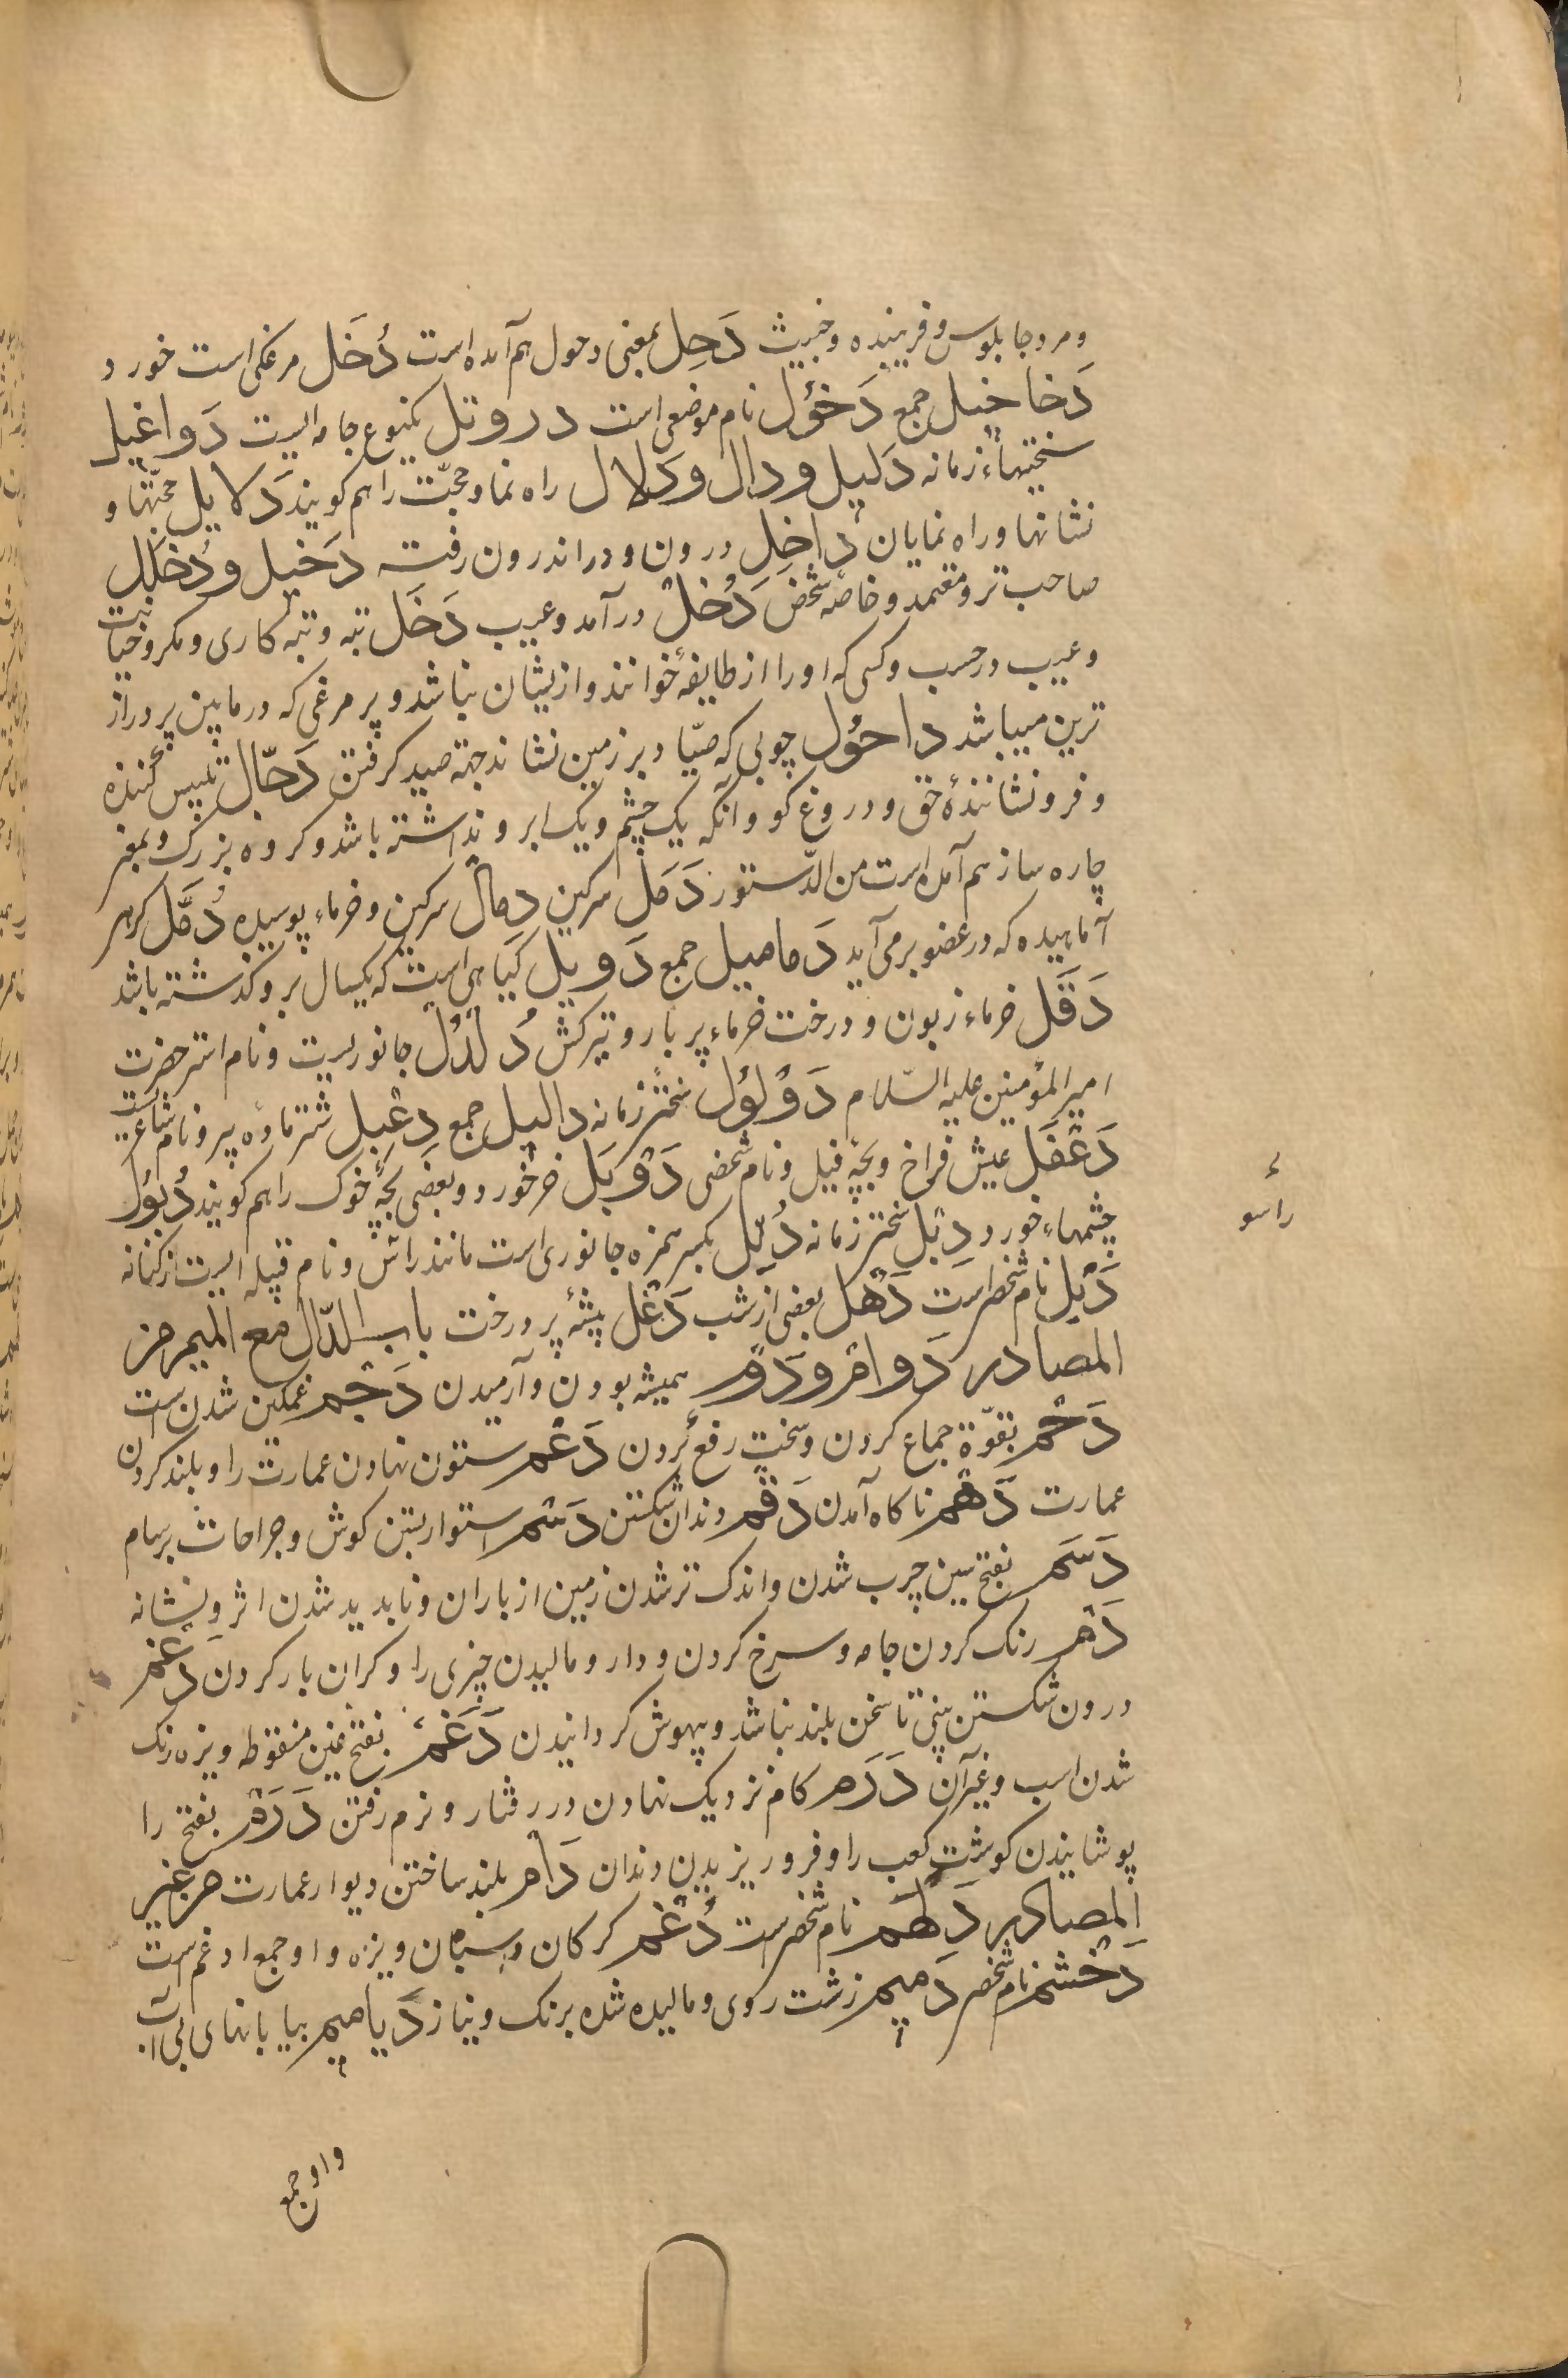 و مرد چابلوس و فریبنده و خبیث دَحِل بمعنی دحول هم آمده است دُخَل مرغکی است خورد و
دَخاخیل جمع دَخوُل نام موضعی است دروتل یکنوع جامه‌ایست دَواغیل
سختیهاء زمانه دَلیل و دال و دَلال راه نما و حجّت را هم کویند دَلایل حجّتها و
نشانها و راه نمایان داخِل درون و در اندرون رفته دَخیل و دُخلَل
صاحب تر و معتمد و خاصّه شخص دَخل درآمد و عیب دَخَل تبه و تبه کاری و مکر و خیانت
و عیب در حسب و کسی که او را از طایفهٔ خوانند و از یشان نباشد و پر مرغی که در مابین پر دراز
ترین میباشد داحوُل چوبی که صیّاد بر زمین نشاند جهة صید کرفتن دَجّال تلبیس کننده
و فرو نشانندهٔ حق و دروغ کو و انکه یک چشم و یک ابرو نداشته باشد و کروه بزرک و بمعنی
چاره ساز هم آمده است من الدّستور دَمَل سرکین دمال سرکین و خرماء پوسیده دُمَّل کره
آماهیده که در عضو برمی‌آید دَمامیل جمع دَویل کیاهی است که یکسال برو کذشته باشد
دَقَل خرماء زبون و درخت خرماء پر بار و تیرکش دُلدُل جانوریست و نام استر حضرت
امیر المؤمنین علیه السّلام دَؤلوُل سختئ زمانه دالیل جمع دِعْبل شتر مادّه پیر و نام شاعریست
دَغْفَل عیش فراخ و بچّه فیل و نام شخصی دَوْبَل خر خورد و بعضی بچّهٔ خوک را هم کویند دُبوُل
چشمهاء خورد دِبْل سختئ زمانه دُئِل بکسر همزه جانوری است مانند راسُو و نام قبیله‌ایست از کنانه
دَیْل نام شخصی است دَهْل بعضی از شب دَغْل بیشهٔ پر درخت باب الدّال مع المیم من
المصادر دَوام و دَوم همیشه بودن و آرمیدن دَجْم غمکین شدن است
دَحْم بقوّة جماع کردن و سخت رفع کردن دَعْم ستون نهادن عمارت را و بلند کردن
عمارت دَهْم ناکاه آمدن دَقْم دندان شکستن دَسْم استوار بستن کوش و جراحات بسهام
دَسَم بفتح سین چرب شدن و اندک تر شدن زمین از باران و ناپدید شدن اثر و نشانه
دَم رنک کردن جامه و سرخ کردن و دارو مالیدن چیزی را و کران بار کردن دغم
درون شکستن بینی تا سخن بلند نباشد و بیهوش کردانیدن دَغَم بفتح غین منقوطه ویزه رنک
شدن اسب و غیرآن دَرَم کام نزدیک نهادن در رفتار و نرم رفتن دَرَم بفتح را
پوشانیدن کوشت کعب را و فرو ریزیدن دندان دَام بلند ساختن دیوار عمارت من غیر
المصادر دَلْهَم نام شخصی است دُغْم کرکان و سپان ویزه و او جمع ادغم است
دَخْشم نام شخصی دَمیم زشت روی و مالیده شده برنک و پیاز دَیامیم بیابانهای بی آب
راسو
واو جمع